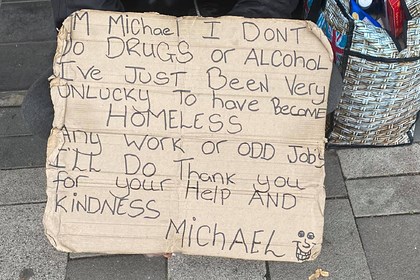 I'M Michael I DONT
DO DRUGS or Alcohol
I've JUST Been Very
UNLUCKY To have Become
HOMELESS
Any Work or ODD Jobs
I'LL DO Thank you
for your Help AND
KiNDNESS
MiCHAEL